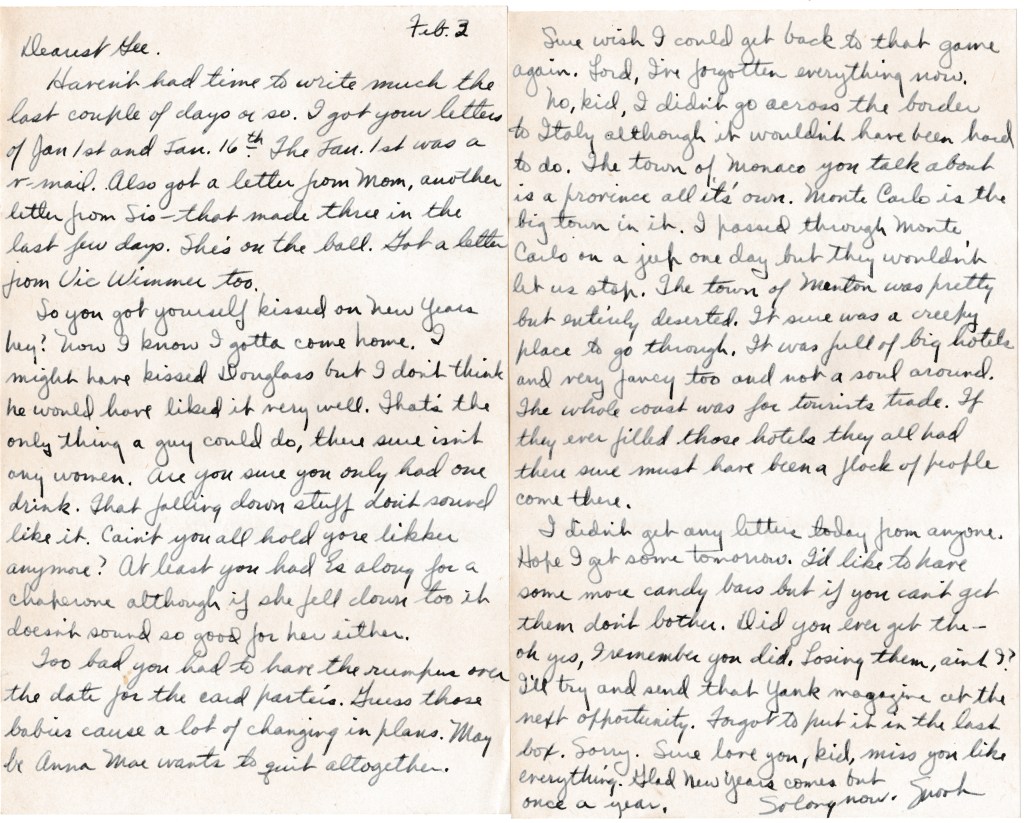 Feb. 3
Dearest Gee.
Haven't had time to write much the
last couple of days or so. I got your letters
of Jan 1st and Jan. 16th. The Jan. 1st was a
v-mail. Also got a letter from Mom, another
letter from Sis - that made three in the
last few days. She's on the ball. Got a letter
from Vic Wimmer too.
So you got yourself kissed on New Years
hey? Now I know I gotta come home. I
might have kissed Douglass but I don't think
he would have liked it very well. That's the
only thing a guy could do, there sure isn't
any women. Are you sure you only had one
drink. That falling down stuff don't sound
like it. Cain't you all hold yore likker
anymore? At least you had Es along for a
chaperone although if she fell down too it
doesn't sound so good for her either.
Too bad you had to have the rumpus over
the date for the card partis. Guess those
babies cause a lot of changing in plans. May
be Anna Mae wants to quit altogether.
Sure wish I could get back to that game
again. Lord, I've forgotten everything now.
No, kid, I didn't go across the border
to Italy although it wouldn't have been hard
to do. The town of Monaco you talk about
is a province all it's own. Monte Carlo is the
big town in it. I passed through Monte
Carlo on a jeep one day but they wouldn't
let us stop. The town of Menton was pretty
but entirely deserted. It sure was a creepy
place to go through. It was full of big hotels
and very fancy too and not a soul around.
The whole coast was for tourists trade. If
they ever filled those hotels they all had
there sure must have been a flock of people
come there.
I didn't get any letters today from anyone.
Hope I get some tomorrow. I'd like to have
some more candy bars but if you can't get
them don't bother. Did you ever get the -
oh yes, I remember you did. Losing them, ain't I?
I'll try and send that Yank magazine at the
next opportunity. Forgot to put it in the last
box. Sorry. Sure love you, kid, miss you like
everything. Glad New Years comes but
once a year.
So long now.